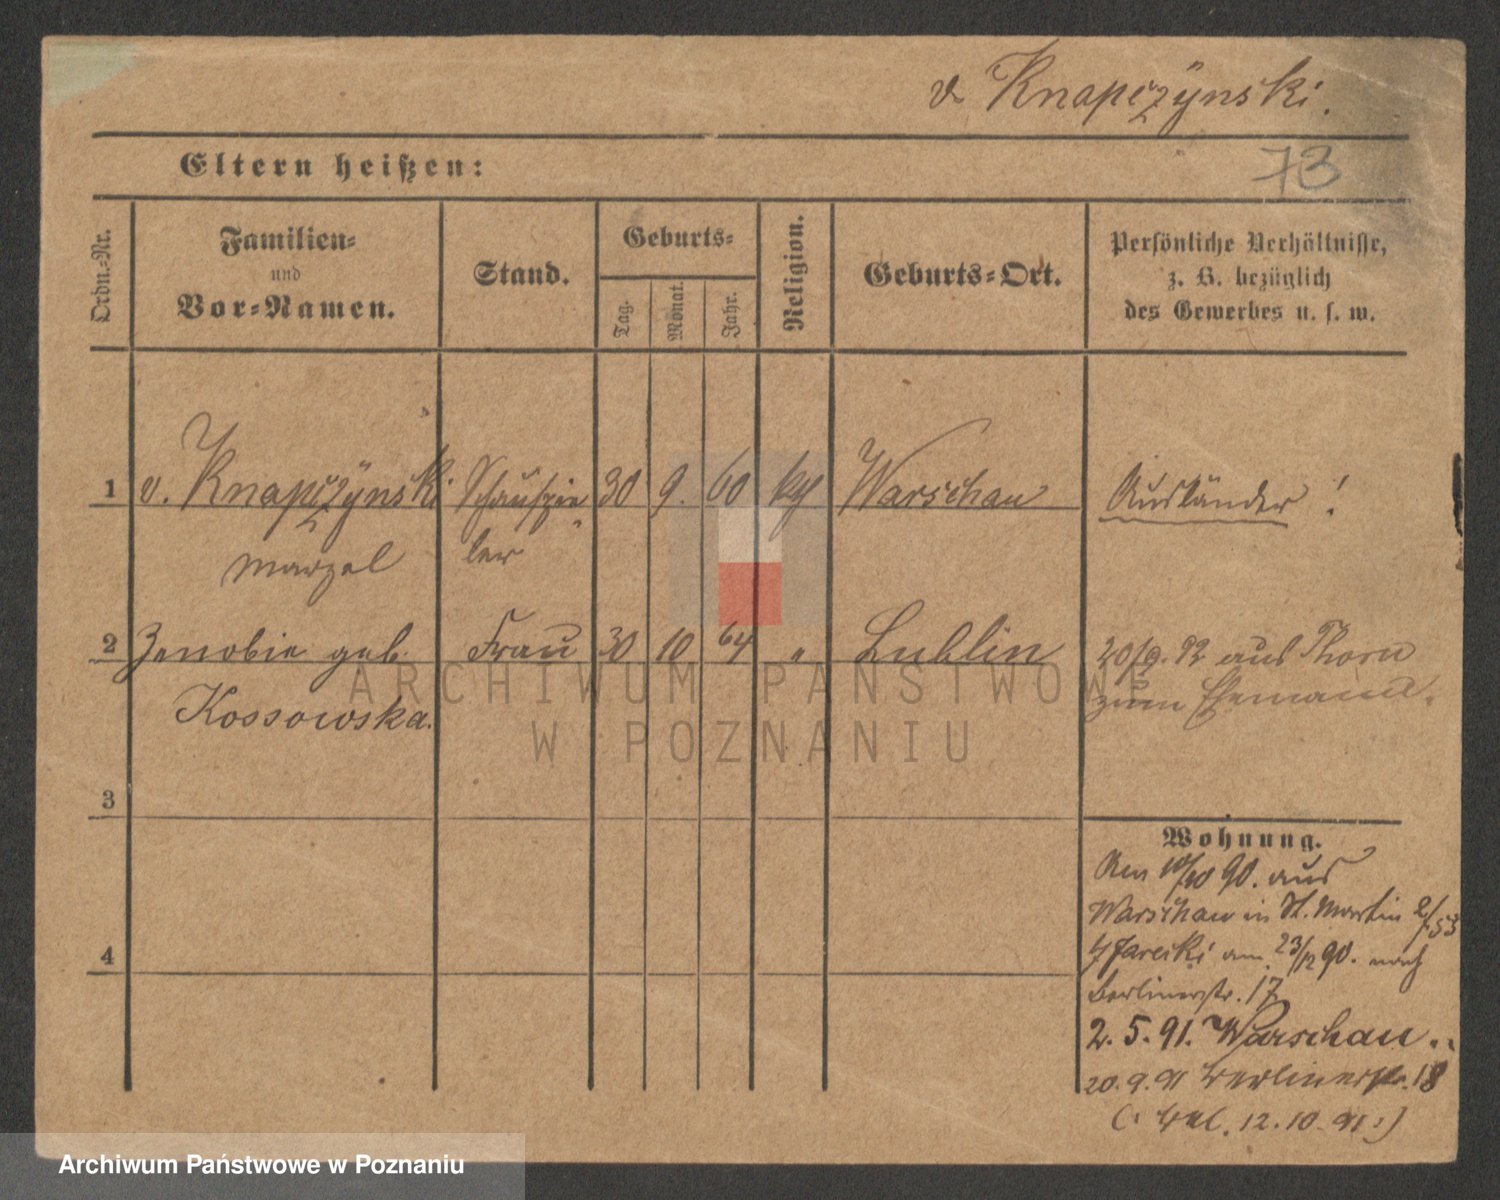 v. Knapczÿnski.
Eltern heißen:
73
Ordn.-Nr.
Familien-
und
Vor-Namen.
Stand.
Geburts-
Tag.
Monat.
Jahr.
Religion.
Geburts-Ort.
Persönliche Verhältnisse,
z. B. bezüglich
des Gewerbes u. s. w.
1 v. Knapczÿnski Schauspie 30 9. 60 Warschau Ausländer!
Marzel ler
2 Zenobie geb. Frau 30 10 64 " Lublin 20/9. 92 aus Thorn
Kossowska. zum Ehemann.
3
4
Wohnung.
Am 10/10 90. aus
Warschau in St. Martin 2/53
am 23/12 90. nach
Berlinerstr. 17
2. 5. 91. Warschau
20. 9. 91 Berlinerstr. 18
12. 10. 91
ARCHIWUM PAŃSTWOWE
W POZNANIU
Archiwum Państwowe w Poznaniu